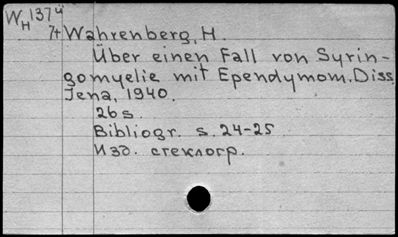 W 137 ü
H 74
Wahrenberg, H.
Über einen Fall von Syrin-
gomyelie mit Ependymom. Diss.
Jena, 1940.
26 s.
Bibliogr. s. 24-25
Изд. стеклогр.